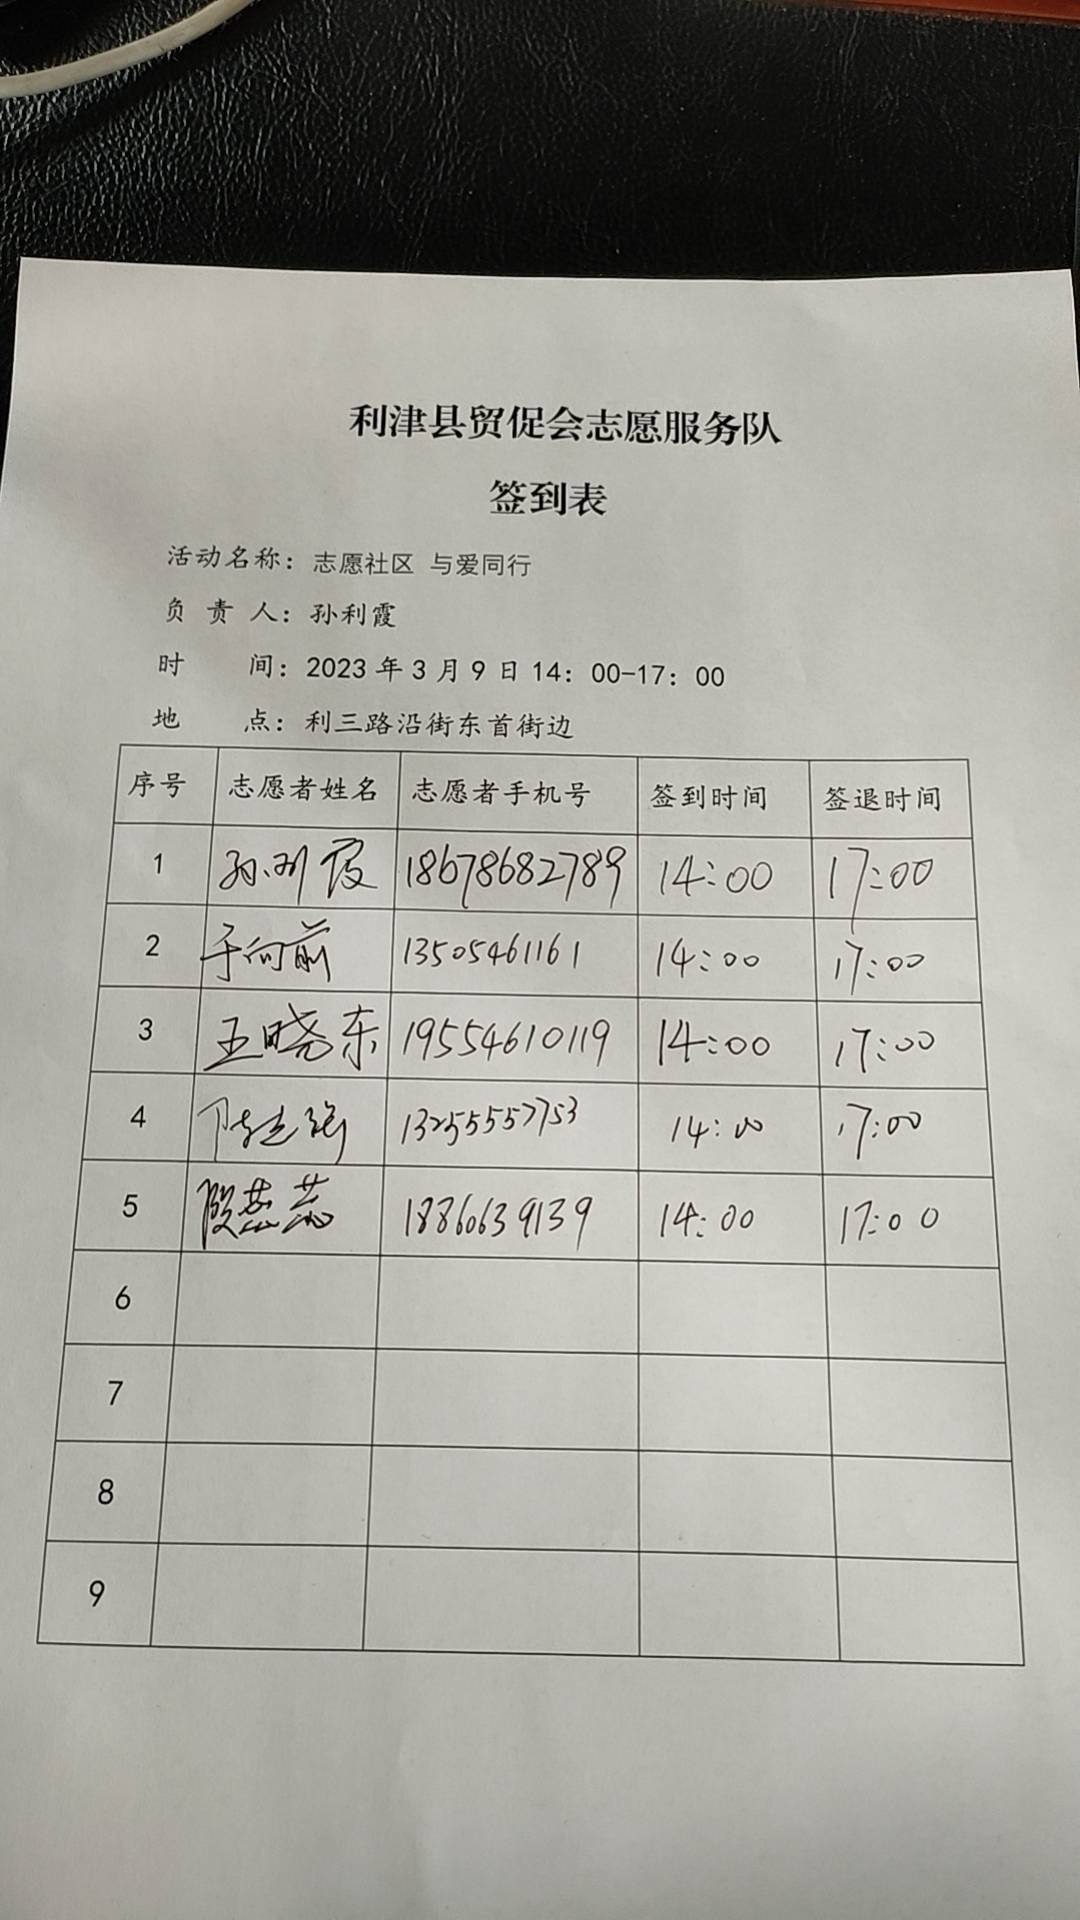 利津县贸促会志愿服务队
签到表
活动名称：志愿社区 与爱同行
负 责 人：孙利霞
时 间：2023 年 3 月 9 日 14：00-17：00
地 点：利三路沿街东首街边
序号 志愿者姓名 志愿者手机号 签到时间 签退时间
1 孙利霞 18678682789 14:00 17:00
2 于向前 13505461161 14:00 17:00
3 王晓东 19554610119 14:00 17:00
4 13255557753 14:00 17:00
5 殷蕊蕊 18860639139 14:00 17:00
6
7
8
9